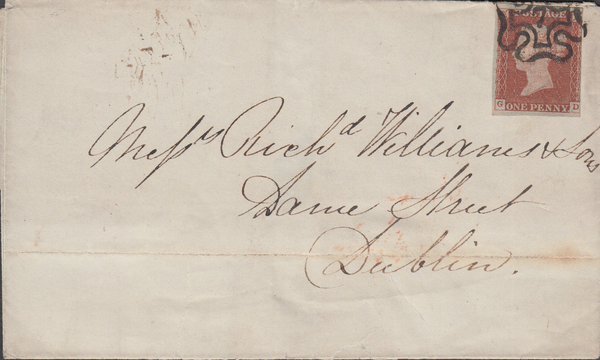 POSTAGE
G D
ONE PENNY
Mess.rs Rich.d Williams & Sons
Dame Street
Dublin.